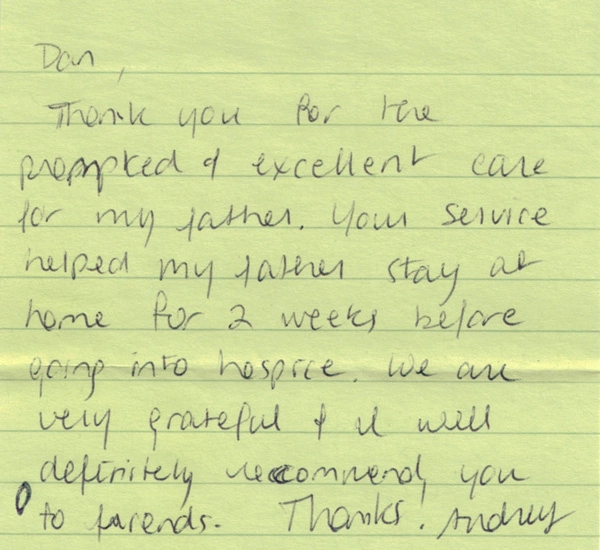 Dan,
Thank you for the
prompted & excellent care
for my father. Your service
helped my father stay at
home for 2 weeks before
going into hospice. We are
very grateful & I will
definitely recommend you
to friends. Thanks! Audrey